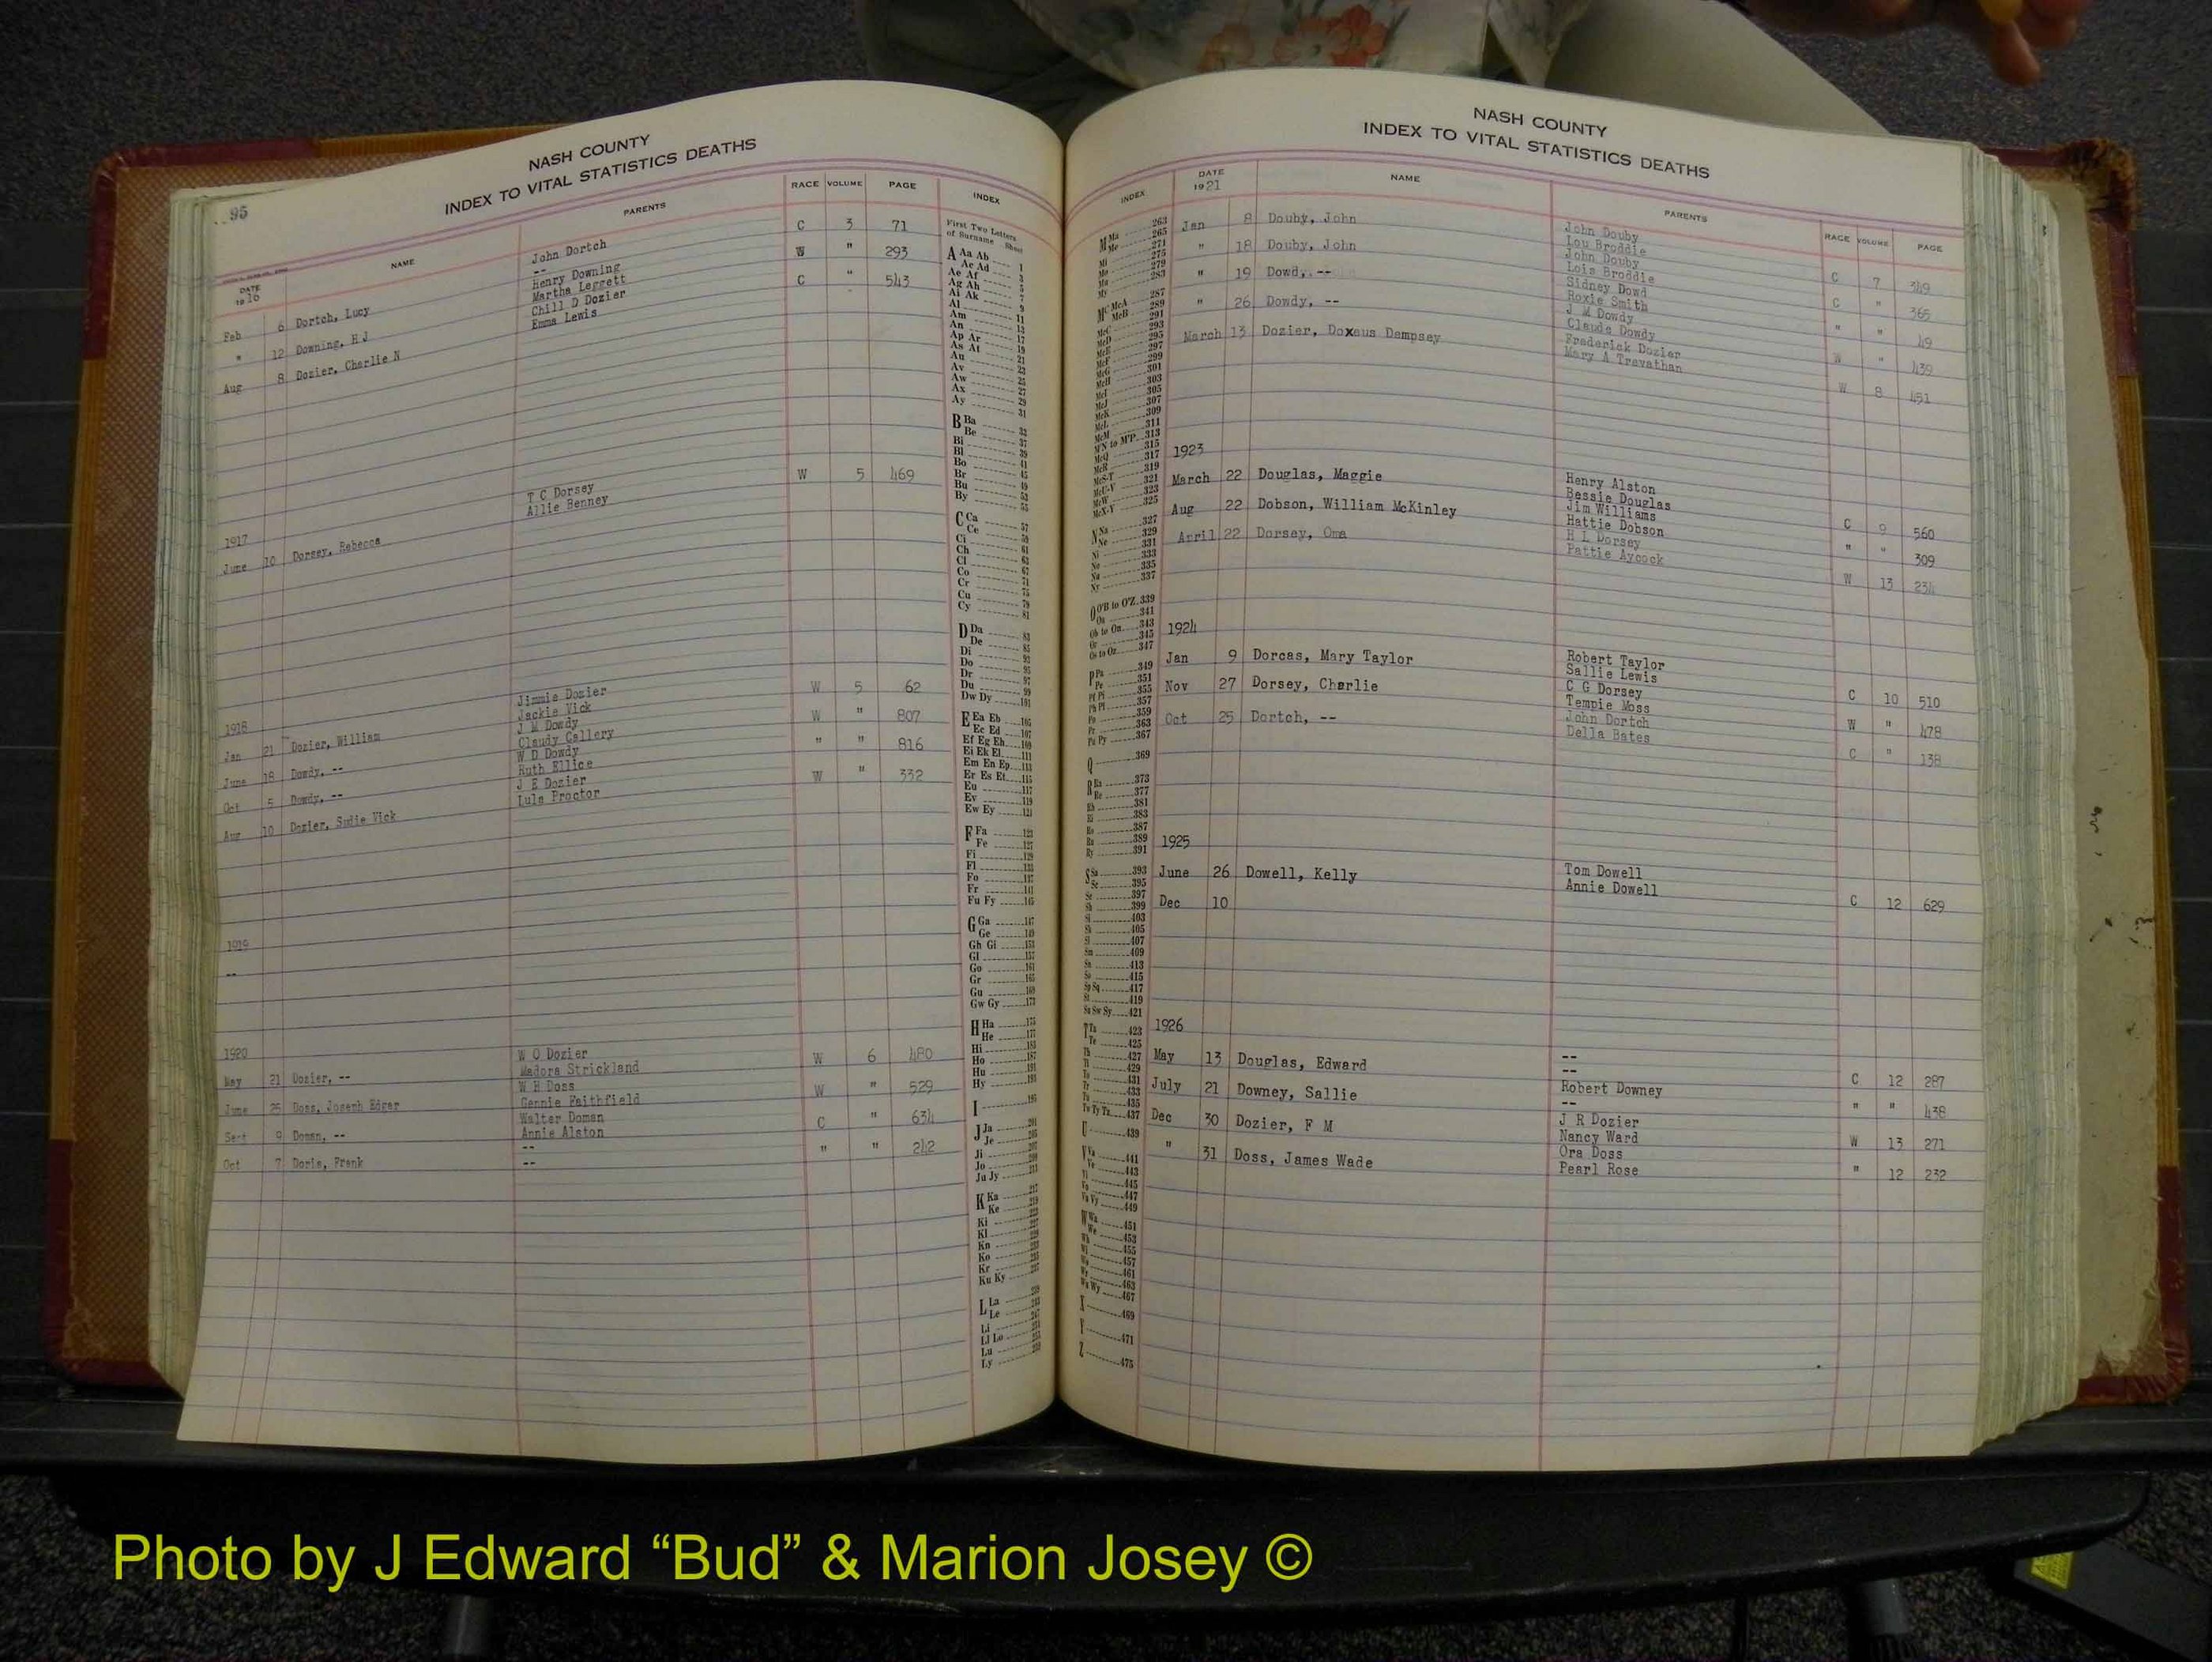 95
NASH COUNTY
INDEX TO VITAL STATISTICS DEATHS
DATE 1916 NAME PARENTS RACE VOLUME PAGE INDEX
Feb 6 Dortch, Lucy John Dortch C 3 71
--
" 12 Downing, H J Henry Downing W " 293
Martha Leggett
Aug 8 Dozier, Charlie N Chill D Dozier C " 543
Emma Lewis
1917
June 10 Dorsey, Rebecca T C Dorsey W 5 469
Allie Benney
1918
Jan 21 Dozier, William Jimmie Dozier W 5 62
Jackie Vick
June 18 Dowdy, -- J M Dowdy W " 807
Claudy Callery
Oct 5 Dowdy, -- W D Dowdy " " 816
Ruth Ellice
Aug 10 Dozier, Sudie Vick J E Dozier W " 332
Lula Proctor
1919
--
1920
May 21 Dozier, -- W O Dozier W 6 480
Madora Strickland
June 25 Doss, Joseph Edgar W H Doss W " 529
Gennie Faithfield
Sept 9 Doman, -- Walter Doman C " 634
Annie Alston
Oct 7 Doris, Frank -- " " 242
--
First Two Letters
of Surname Sheet
A Aa Ab 1
Ac Ad 3
Ae Af 5
Ag Ah 7
Ai Ak 9
Al 11
Am 13
An 17
Ap Ar 19
As At 21
Au 23
Av 25
Aw 27
Ax 29
Ay 31
B Ba 33
Be 37
Bi 39
Bl 41
Bo 45
Br 49
Bu 53
By 55
C Ca 57
Ce 59
Ci 61
Ch 63
Cl 67
Co 71
Cr 75
Cu 79
Cy 81
D Da 83
De 85
Di 93
Do 95
Dr 97
Du 99
Dw Dy 101
E Ea Eb 105
Ec Ed 107
Ef Eg Eh 109
Ei Ek El 111
Em En Ep 113
Er Es Et 115
Eu 117
Ev 119
Ew Ey 121
F Fa 123
Fe 127
Fi 129
Fl 133
Fo 137
Fr 141
Fu Fy 145
G Ga 147
Ge 149
Gh Gi 153
Gl 157
Go 161
Gr 165
Gu 169
Gw Gy 173
H Ha 175
He 177
Hi 183
Ho 187
Hu 191
Hy 193
I 195
J Ja 201
Je 205
Ji 207
Jo 209
Ju Jy 211
K Ka 217
Ke 219
Ki
Kl
Kn
Ko
Kr
Ku Ky
L La
Le
Li
Ll Lo
Lu
Ly
NASH COUNTY
INDEX TO VITAL STATISTICS DEATHS
INDEX DATE 1921 NAME PARENTS RACE VOLUME PAGE
Jan 8 Douby, John John Douby C 7 349
Lou Broddie
" 18 Douby, John John Douby C " 365
Lois Broddie
" 19 Dowd, -- Sidney Dowd " " 49
Roxie Smith
" 26 Dowdy, -- J M Dowdy W " 439
Claude Dowdy
March 13 Dozier, Doxeus Dempsey Frederick Dozier W 8 451
Mary A Trevathan
1923
March 22 Douglas, Maggie Henry Alston C 9 560
Bessie Douglas
Aug 22 Dobson, William McKinley Jim Williams " " 309
Hattie Dobson
April 22 Dorsey, Oma H L Dorsey W 13 234
Pattie Aycock
1924
Jan 9 Dorcas, Mary Taylor Robert Taylor C 10 510
Sallie Lewis
Nov 27 Dorsey, Charlie C G Dorsey W " 478
Tempie Moss
Oct 25 Dortch, -- John Dortch C " 138
Della Bates
1925
June 26 Dowell, Kelly Tom Dowell C 12 629
Annie Dowell
Dec 10
1926
May 13 Douglas, Edward -- C 12 287
--
July 21 Downey, Sallie Robert Downey " " 438
--
Dec 30 Dozier, F M J R Dozier W 13 271
Nancy Ward
" 31 Doss, James Wade Ora Doss " 12 232
Pearl Rose
M Ma 263
Me 265
Mi 271
275
Mo 279
Mu 283
My
Mc McA 287
McB 289
McC 291
McD 293
McE 295
McF 297
McG 299
McH 301
McI 303
McJ 305
McK 307
McL 309
McM 311
M'N to M'P 313
McQ 315
McR 317
McS-T 319
McU-V 321
McW 323
McX-Y 325
N Na 327
Ne 329
Ni 331
No 333
Nu 335
Ny 337
O O'B to O'Z 339
Oa 341
Ob to On 343
Or 345
Os to Oz 347
P Pa 349
Pe 351
Pf Pi 355
Ph Pl 357
Po 359
Pr 363
Pu Py 367
Q 369
R Ra 373
Re 377
Rh 381
Ri 383
Ro 387
Ru 389
Ry 391
S Sa 393
Sc 395
Se 397
Sh 399
Si 403
Sk 405
Sl 407
Sm 409
Sn 413
So 415
Sp Sq 417
St 419
Su Sw Sy 421
T Ta 423
Te 425
Th 427
Ti 429
To 431
Tr 433
Tu 435
Tw Ty Tz 437
U 439
V Va 441
Ve 443
Vi 445
Vo 447
Vu Vy 449
W Wa 451
We 453
Wh 455
Wi 457
Wo 461
Wr 463
Wu Wy 467
X 469
Y 471
Z 475
Photo by J Edward “Bud” & Marion Josey ©